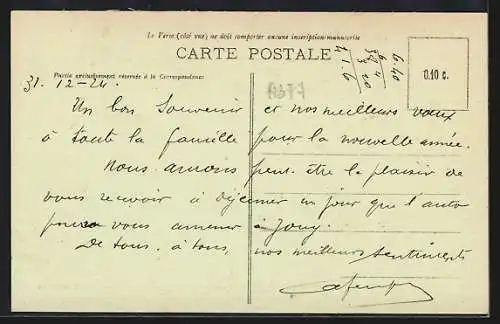 Le Verso (côté vue) ne doit comporter aucune inscription manuscrite
CARTE POSTALE
Partie exclusivement réservée à la Correspondance
0.10 c.
6.40
31. 12-24.
Un bon souvenir et nos meilleurs vœux
à toute la famille pour la nouvelle année.
Nous aurons peut être le plaisir de
vous recevoir à déjeuner un jour que l'auto
pourra vous amener à Jouy.
De tous, à tous, nos meilleurs sentiments